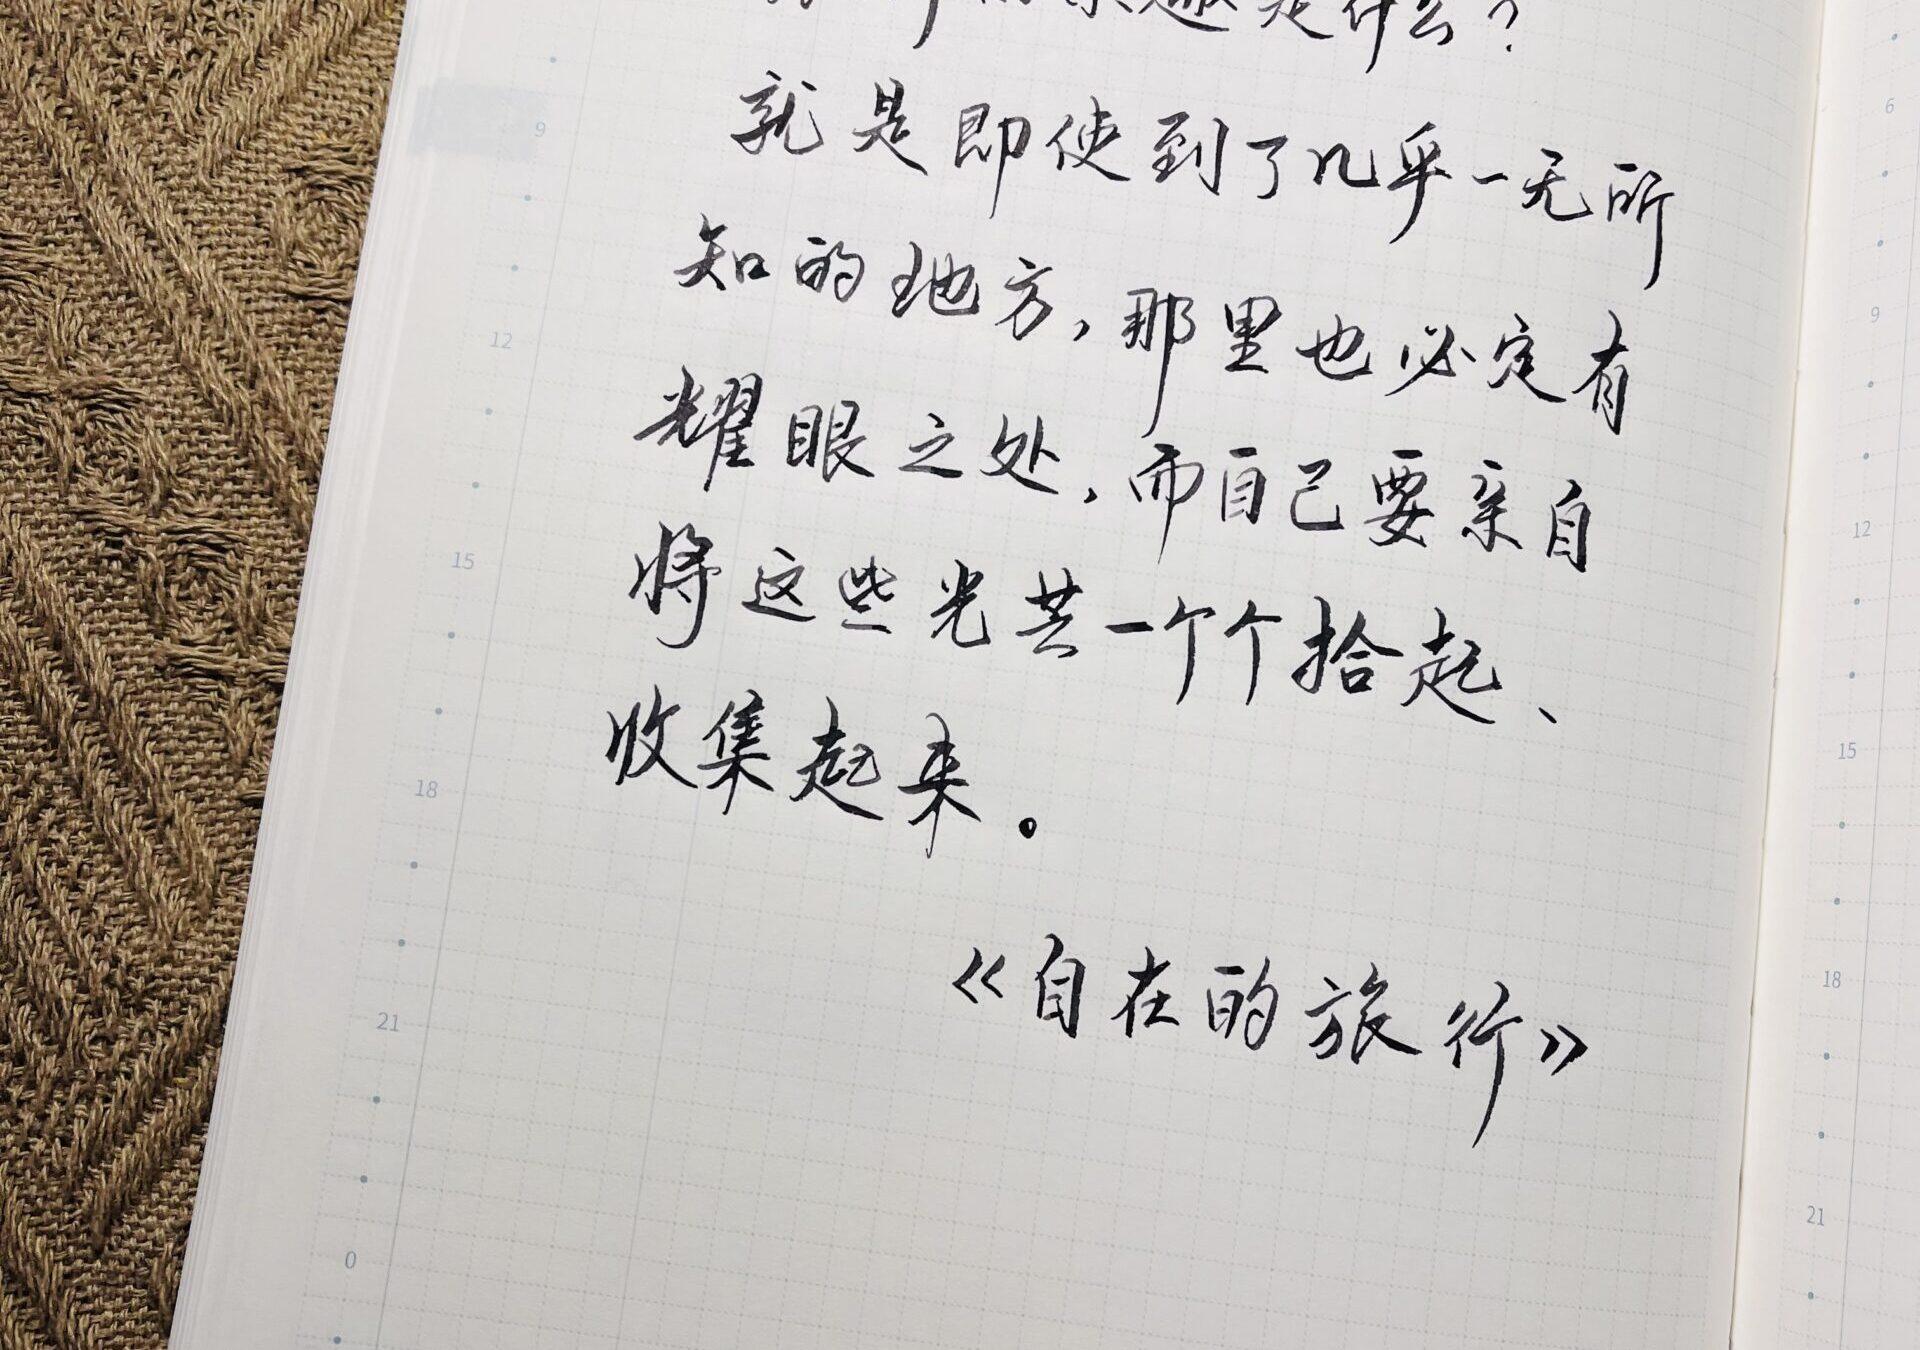 趣是什么？
就是即使到了几乎一无所
知的地方，那里也必定有
耀眼之处，而自己要亲自
将这些光芒一个个拾起、
收集起来。
《自在的旅行》
9
12
15
18
21
0
6
9
12
15
18
21